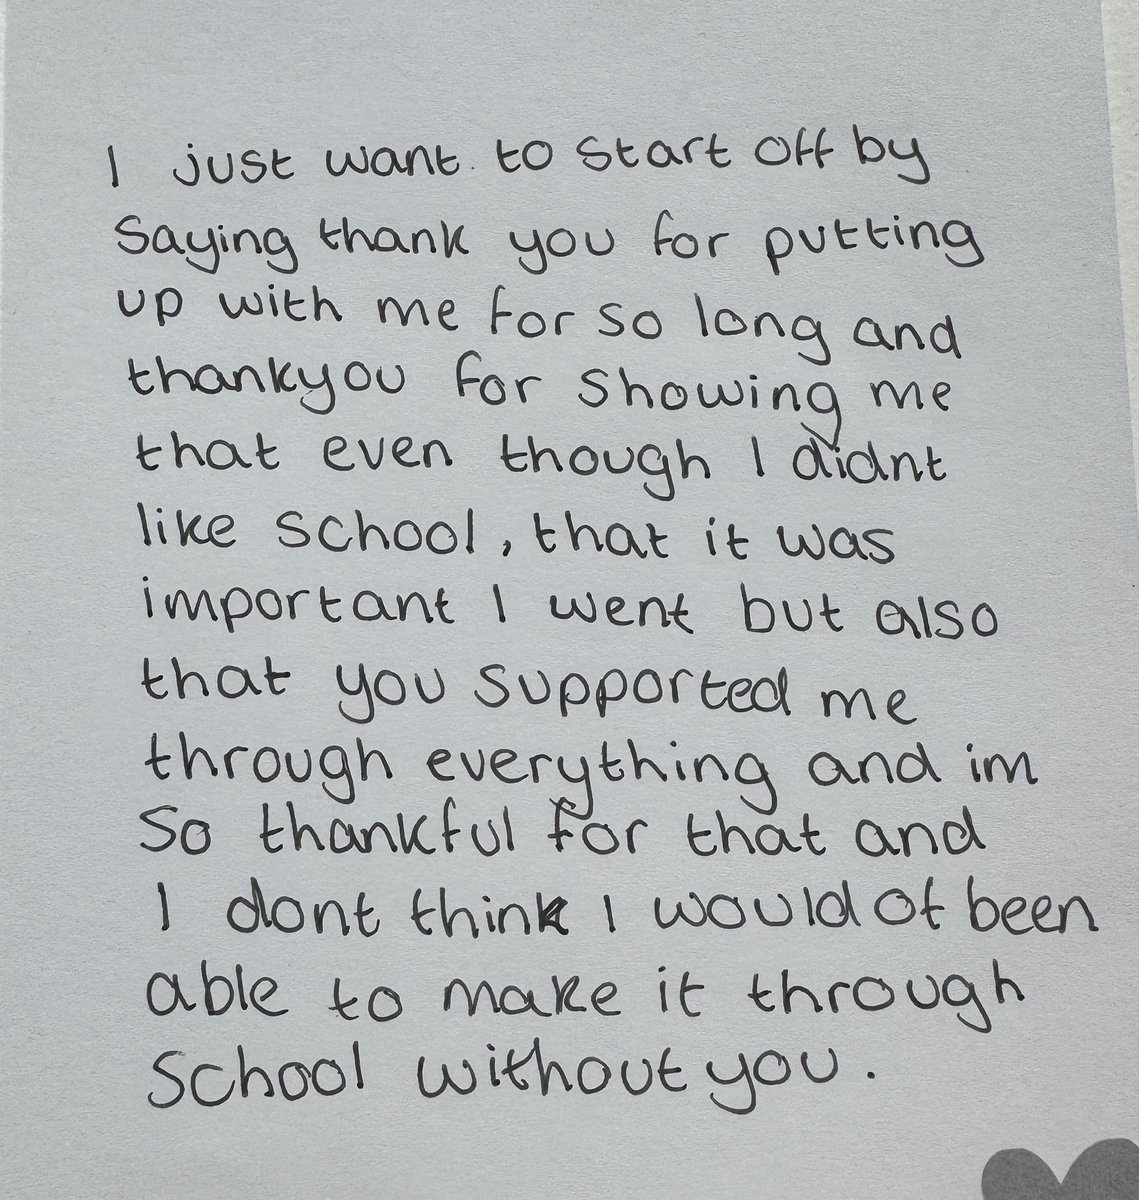 I just want to start off by
saying thank you for putting
up with me for so long and
thankyou for showing me
that even though I didnt
like school, that it was
important I went but also
that you supported me
through everything and im
so thankful for that and
I dont think I would of been
able to make it through
school without you.